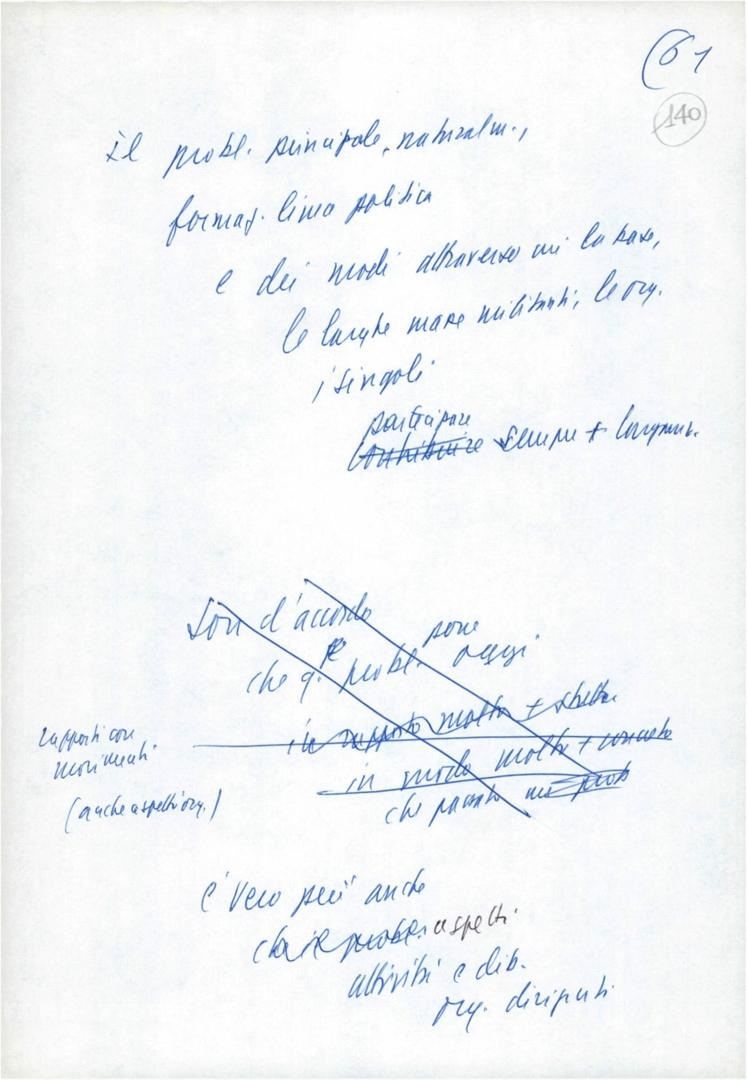 (61
140
il probl. principale, naturalm.,
formaz. linea politica
e dei modi attraverso cui la base,
le larghe masse militanti, le org.
i singoli
participare
contribuire sempre + largam.
Son d'accordo
che q. probl. pone oggi
in rapporto molto + stretto
rapporti con
movimenti
in modo molto + concreto
(anche aspetti org.)
che passato
è vero però anche
che probl. aspetti
attività e dib.
org. dirigenti